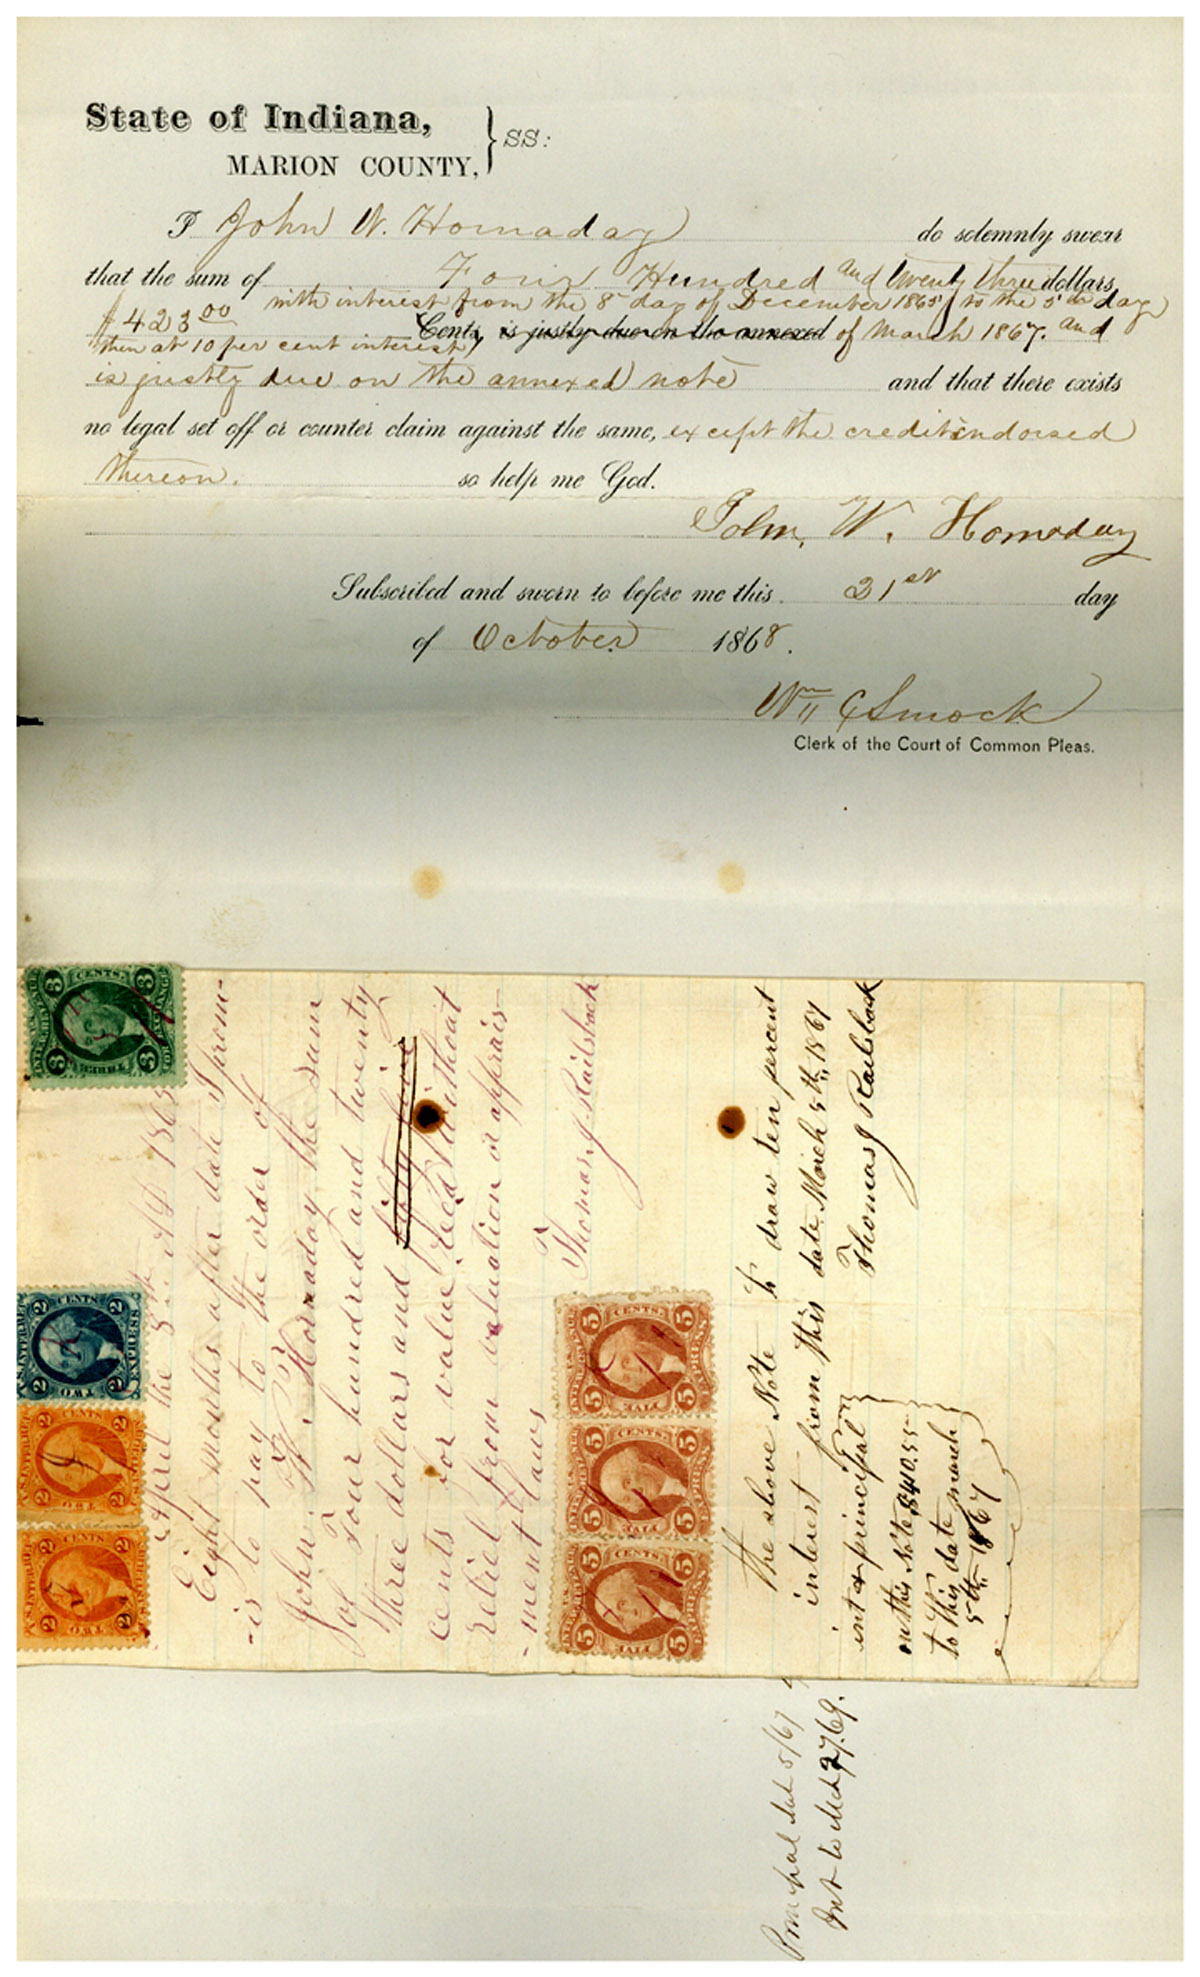 State of Indiana,
MARION COUNTY, } SS:
I John W. Hornaday do solemnly swear
that the sum of Four Hundred and twenty three dollars
$423 00 with interest from the 8 day of December 1865 to the 5th day
Cents, is justly due on the annexed of March 1867. and
then at 10 per cent interest,
is justly due on the annexed note and that there exists
no legal set off or counter claim against the same, except the credits indorsed
thereon. so help me God.
John. W. Hornaday
Subscribed and sworn to before me this 21st day
of October 1868.
Wm C Smock
Clerk of the Court of Common Pleas.
April the 8th AD 1865
Eight months after date I prom-
-is to pay to the order of
John. W. Hornaday the sum
of Four hundred and twenty
three dollars and fifty five
cents for value recd without
relief from valuation or apprais-
-ment laws
Thomas J Railsback
the above Note to draw ten percent
interest from this date March 5th 1867
Thomas J Railsback
int & principal
on this Note $410.55
to this date march
5th 1867
3 CENTS. 3
THREE
U.S. INTER. REV.
2 CENTS 2
EXPRESS
TWO
U.S. INTER. REV.
2 CENTS 2
TWO
U.S. INTER. REV.
2 CENTS 2
TWO
5 CENTS. 5
EXPRESS
FIVE
5 CENTS. 5
EXPRESS
FIVE
5 CENTS. 5
EXPRESS
FIVE
Principal 5/67
Int to 27.69.